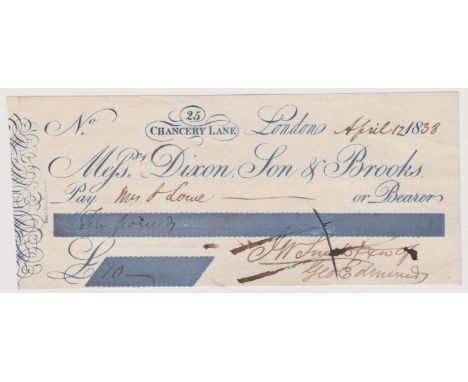 25
CHANCERY LANE
No London April 12 1838
Messrs Dixon, Son & Brooks.
Pay Mrs A Lowe or Bearer
Ten pounds
£ 10
J W Smith Exor of
Geo Edmunds